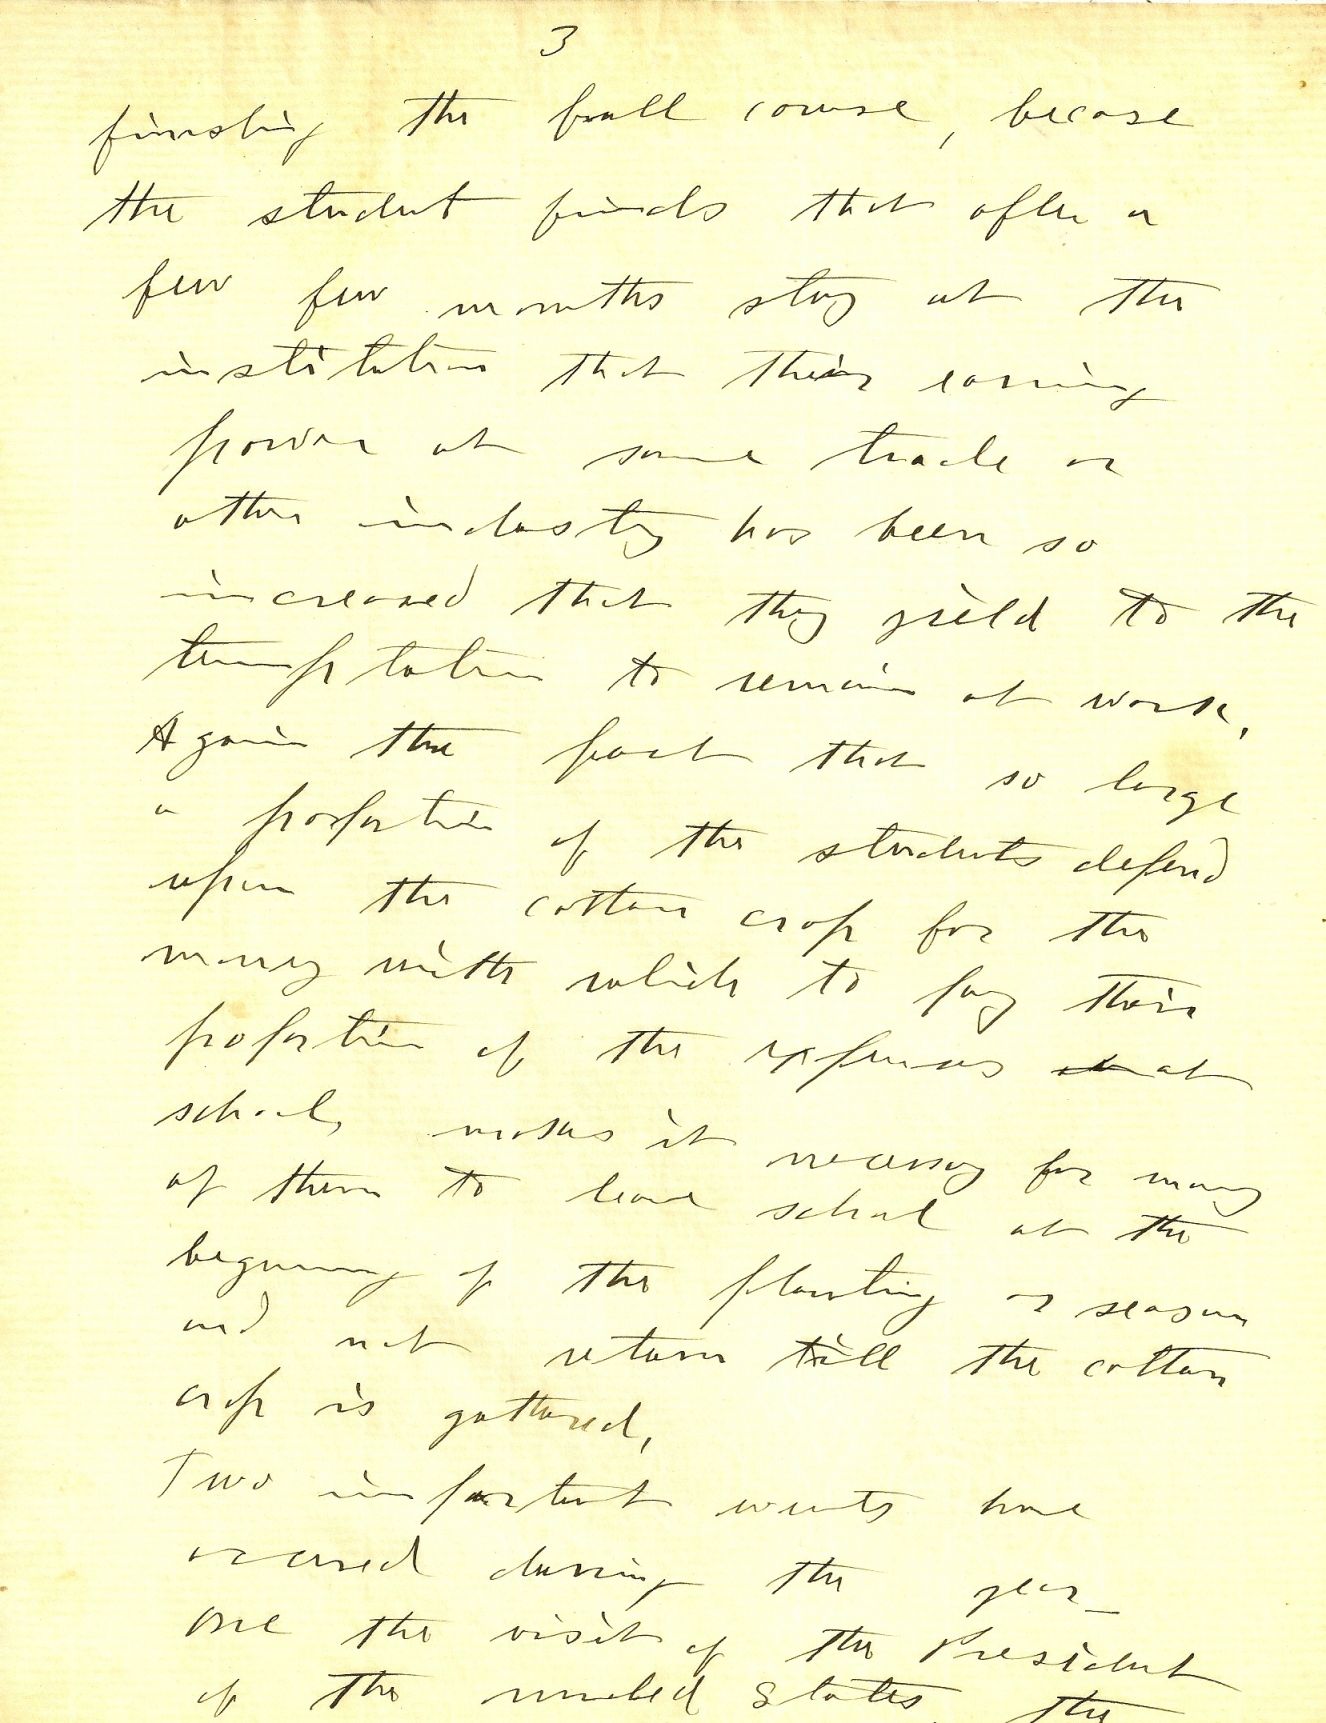 3
finishing the full course, becase
the student finds that after a
few few months stay at the
institution that their earning
power at some trade or
other industry has been so
increased that they yield to the
temptation to remain at work.
Again the fact that so large
a proportion of the students depend
upon the cotton crop for the
money with which to pay their
proportion of the expenses at
school, makes it necessary for many
of them to leave school at the
begining of the planting season
and not return till the cotton
crop is gathered,
Two important events have
occured during the year_
One the visit of the President
of the united States, the